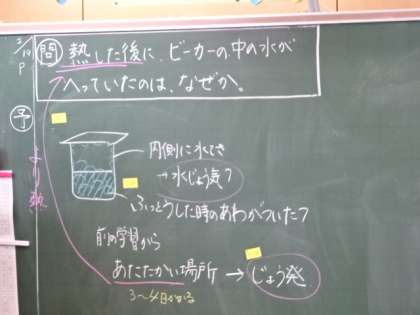 2/10
P
問 熱した後に、ビーカーの中の水が
へっていたのは、なぜか。
予
より熱
内側に水てき
→水じょう気?
ふっとうした時のあわがついた?
前の学習から
あたたかい場所 → じょう発
3〜4日かかる